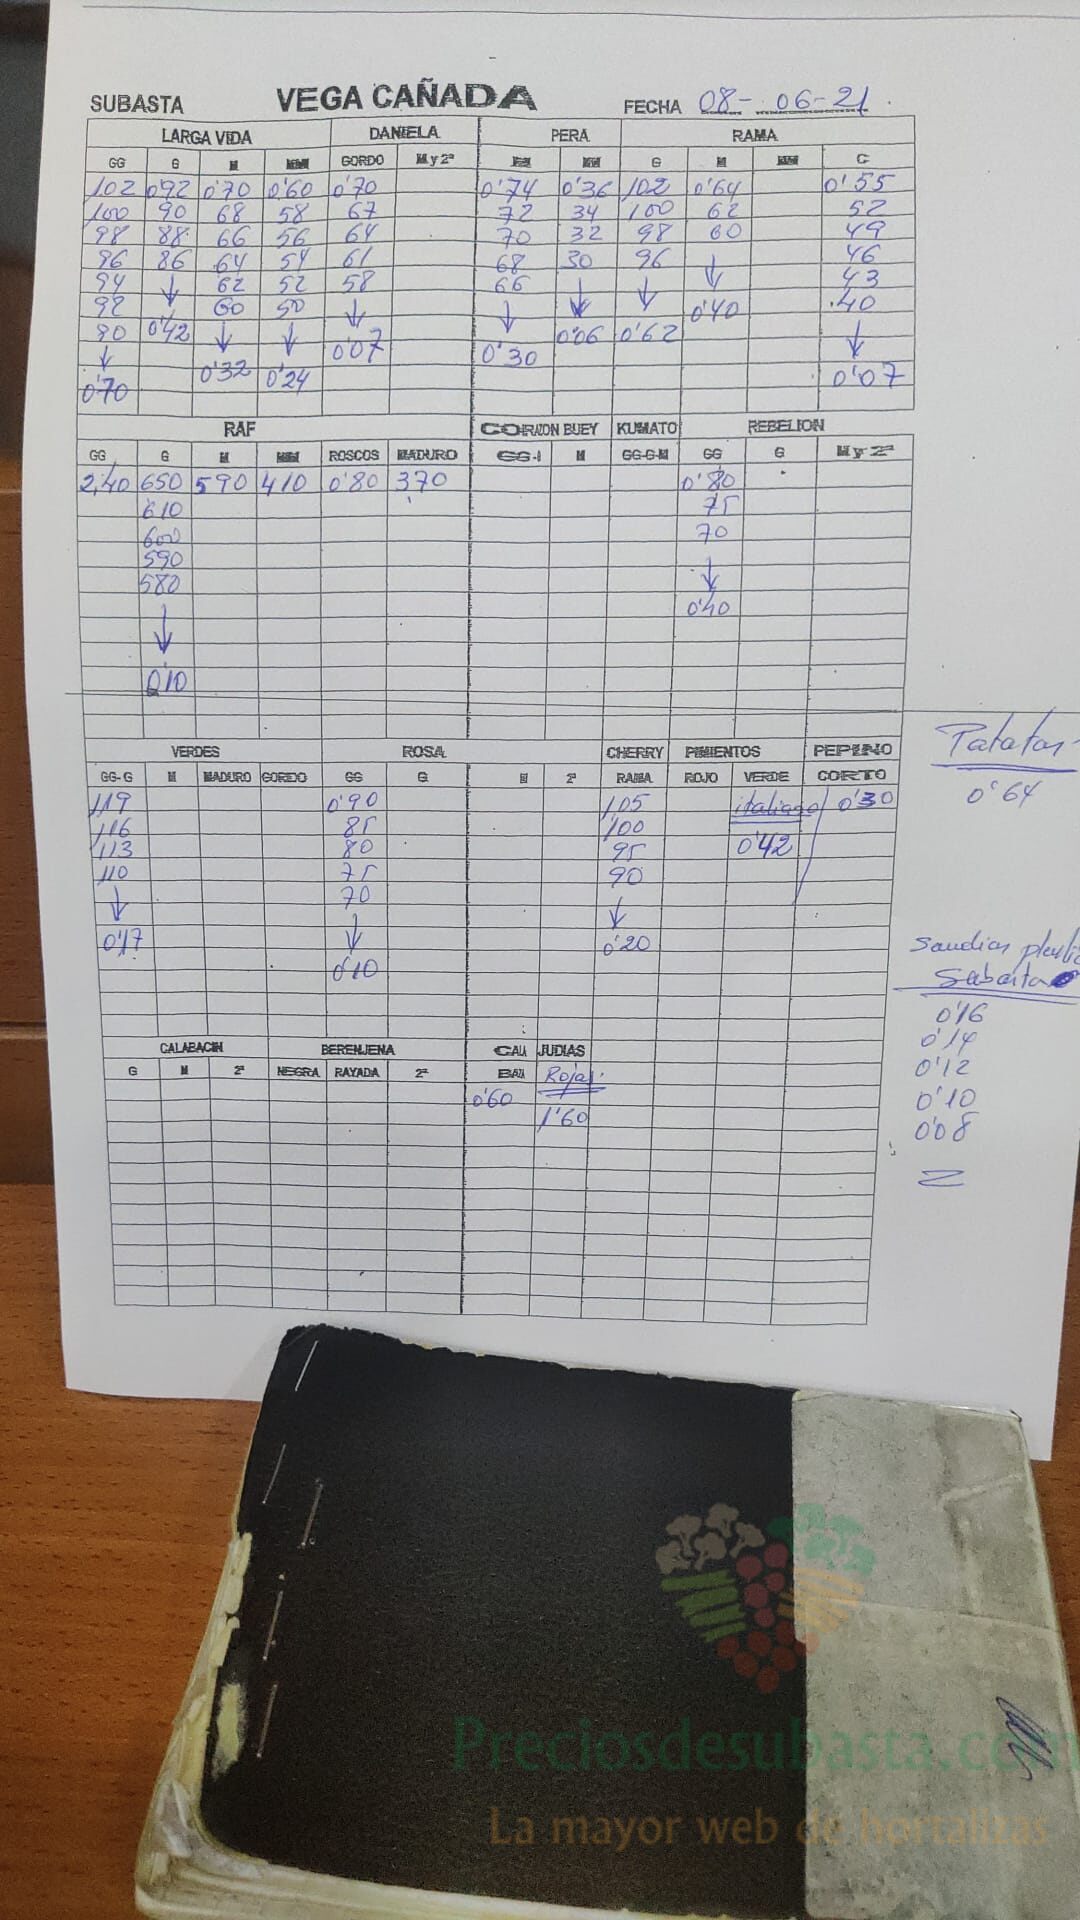 SUBASTA VEGA CAÑADA FECHA 08-06-21
LARGA VIDA DANIELA PERA RAMA
GG G M MM GORDO M y 2ª M MM G M MM C
102 0'92 0'70 0'60 0'70 0'74 0'36 102 0'64 0'55
100 90 68 58 67 72 34 100 62 52
98 88 66 56 64 70 32 98 60 49
96 86 64 54 61 68 30 96 ↓ 46
94 ↓ 62 52 58 66 ↓ ↓ 43
92 60 50 ↓ ↓ 0'40 40
90 0'42 ↓ ↓ 0'07 0'06 0'62 ↓
↓ 0'32 0'24 0'30 0'07
0'70
RAF CORAZON BUEY KUMATO REBELION
GG G M MM ROSCOS MADURO GG-I M GG-G-M GG G M y 2ª
2,40 650 590 410 0'80 370 0'80
610 75
600 70
590 ↓
580 0'40
↓
0'10
VERDES ROSA CHERRY PIMIENTOS PEPINO
GG-G M MADURO GORDO GG G M 2ª RAMA ROJO VERDE CORTO
119 0'90 105 italiano 0'30
116 85 100 0'42
113 80 95
110 75 90
↓ 70 ↓
0'17 ↓ 0'20
0'10
CALABACIN BERENJENA CALA JUDIAS
G M 2ª NEGRA RAYADA 2ª Rojas
0'60
1'60
Patatas
0'64
Sandias
Subasta
0'16
0'14
0'12
0'10
0'08
Preciosdesubasta.com
La mayor web de hortalizas